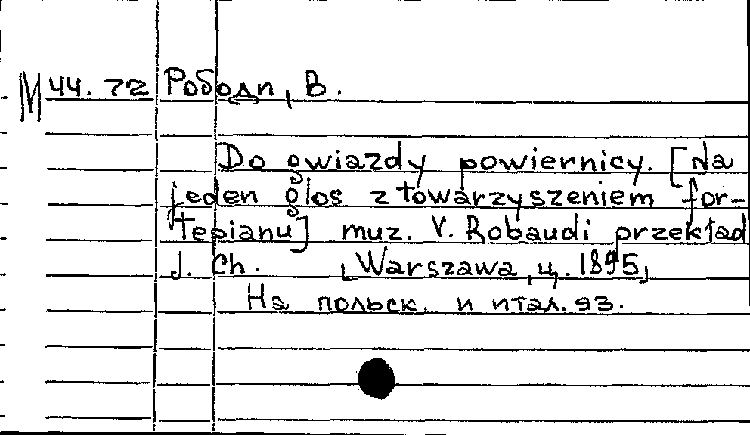 М 44.72 Рободи, В.
Do gwiazdy powiernicy. [Na
jeden głos z towarzyszeniem for-
tepianu] muz. V. Robaudi przekład
J. Ch. [Warszawa, ц. 1895]
На польск. и итал. яз.